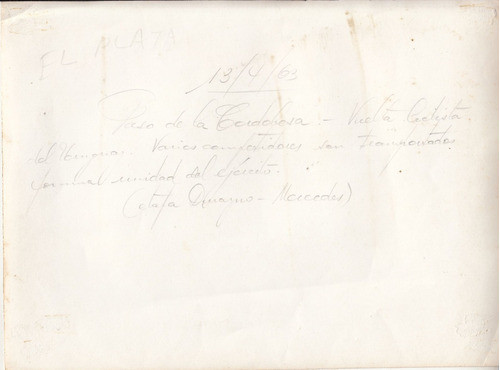 EL PLATA
13/4/63
Paso de la Cordobesa - Vuelta Ciclista
del Uruguay. Varios competidores son transportados
unidad del ejército.
(etapa Durazno - Mercedes)